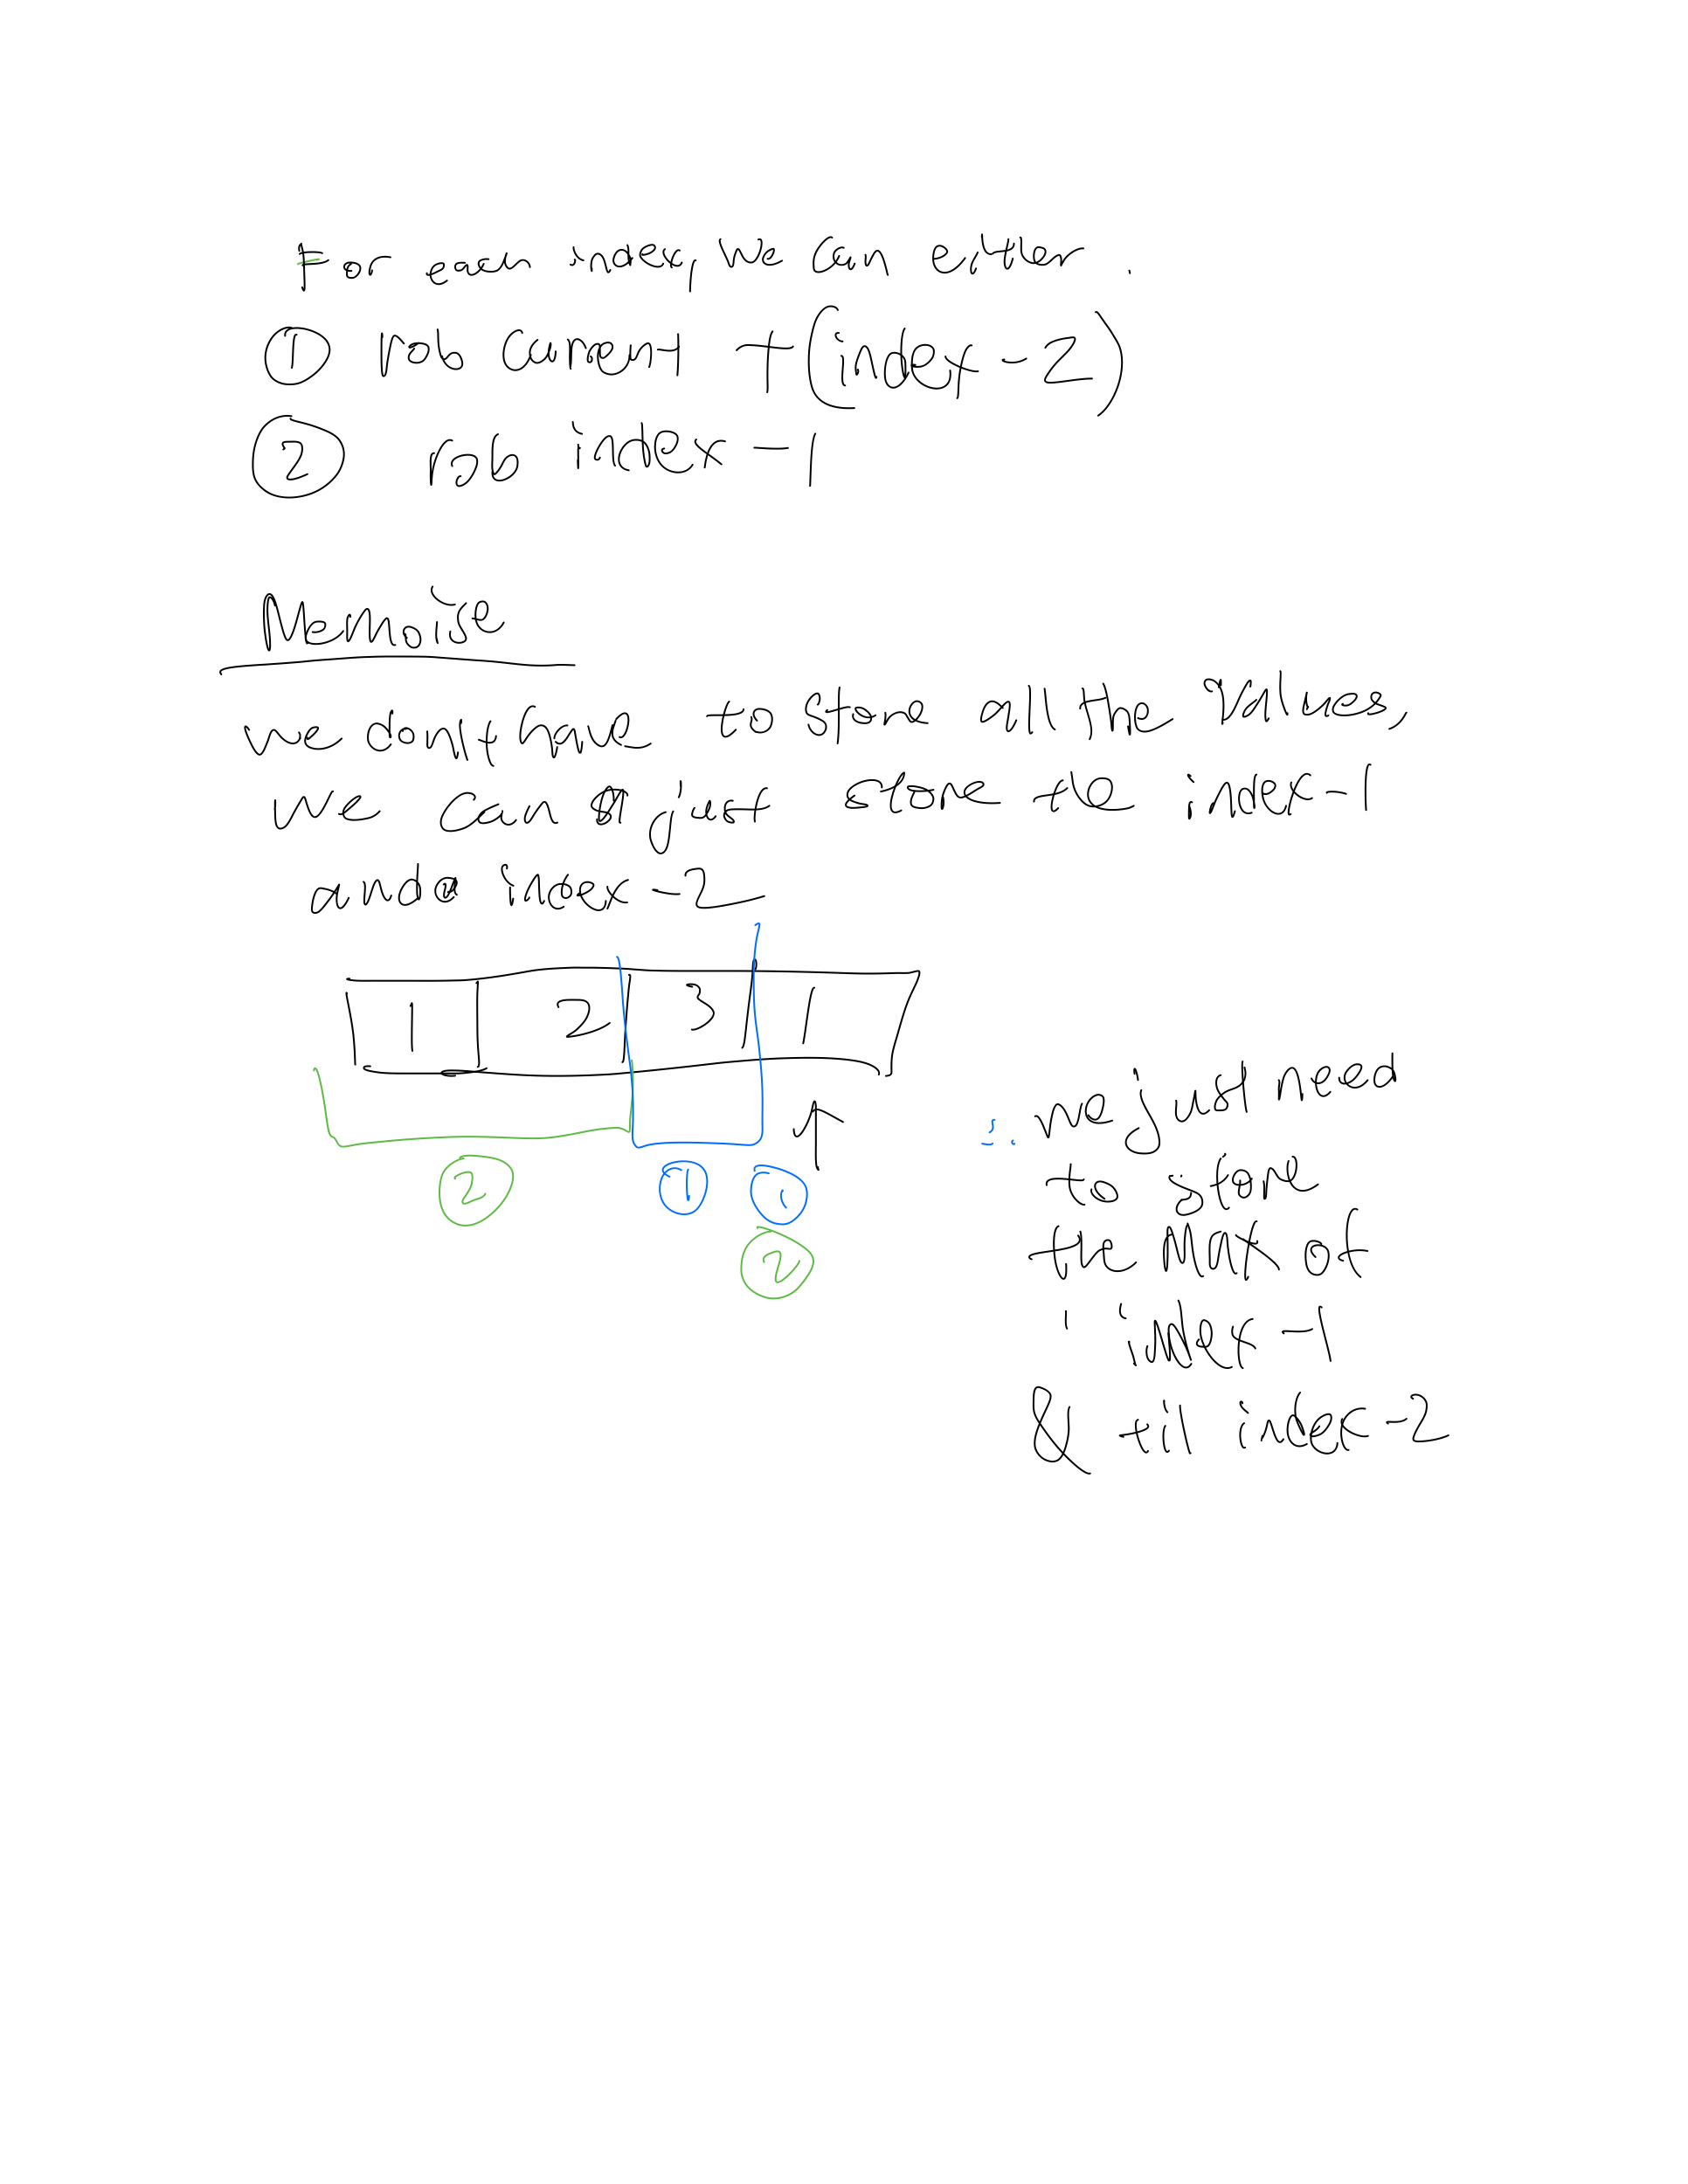 For each index, we can either.
① rob current + (index - 2)
② rob index - 1
Memoise
we don't have to store all the values,
we can just store the index-1
and index -2
1 2 3 1
② ① ①
②
∴ we just need
to store
the max of
index -1
& til index -2